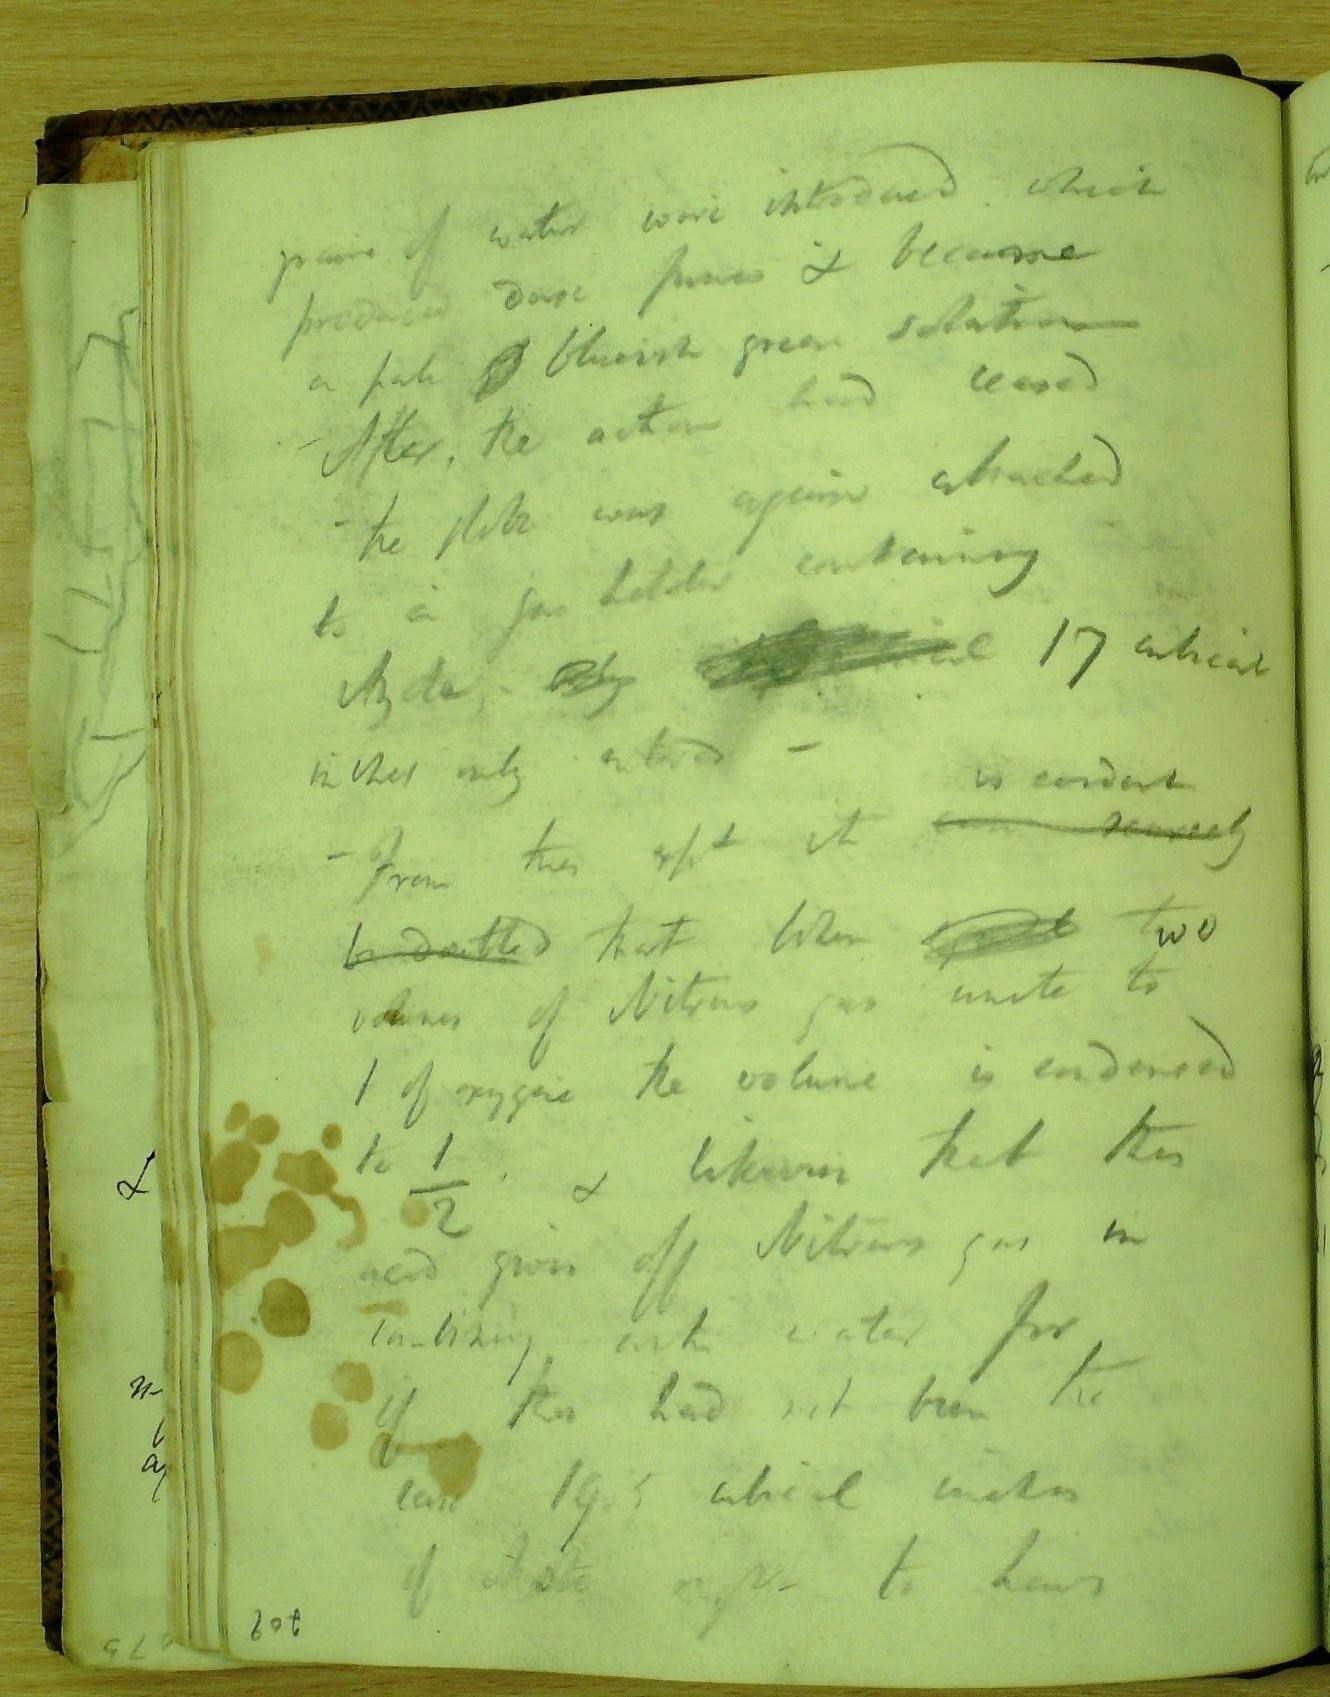 grains of water were introduced which
produced dense fumes & became
a pale bluish green solution
- After, the action had ceased
- the globe was again attached
to a gas holder containing
17 cubical
inches only entered -
is evident
- From this expt it can scarcely
be doubted that when two
volumes of Nitrous gas unite to
1 of oxygene the volume is condensed
to 1/2. & likewise that this
acid gives off Nitrous gas in
combining with water for
if this had not been the
case 19.5 cubical inches
of ought to have
109